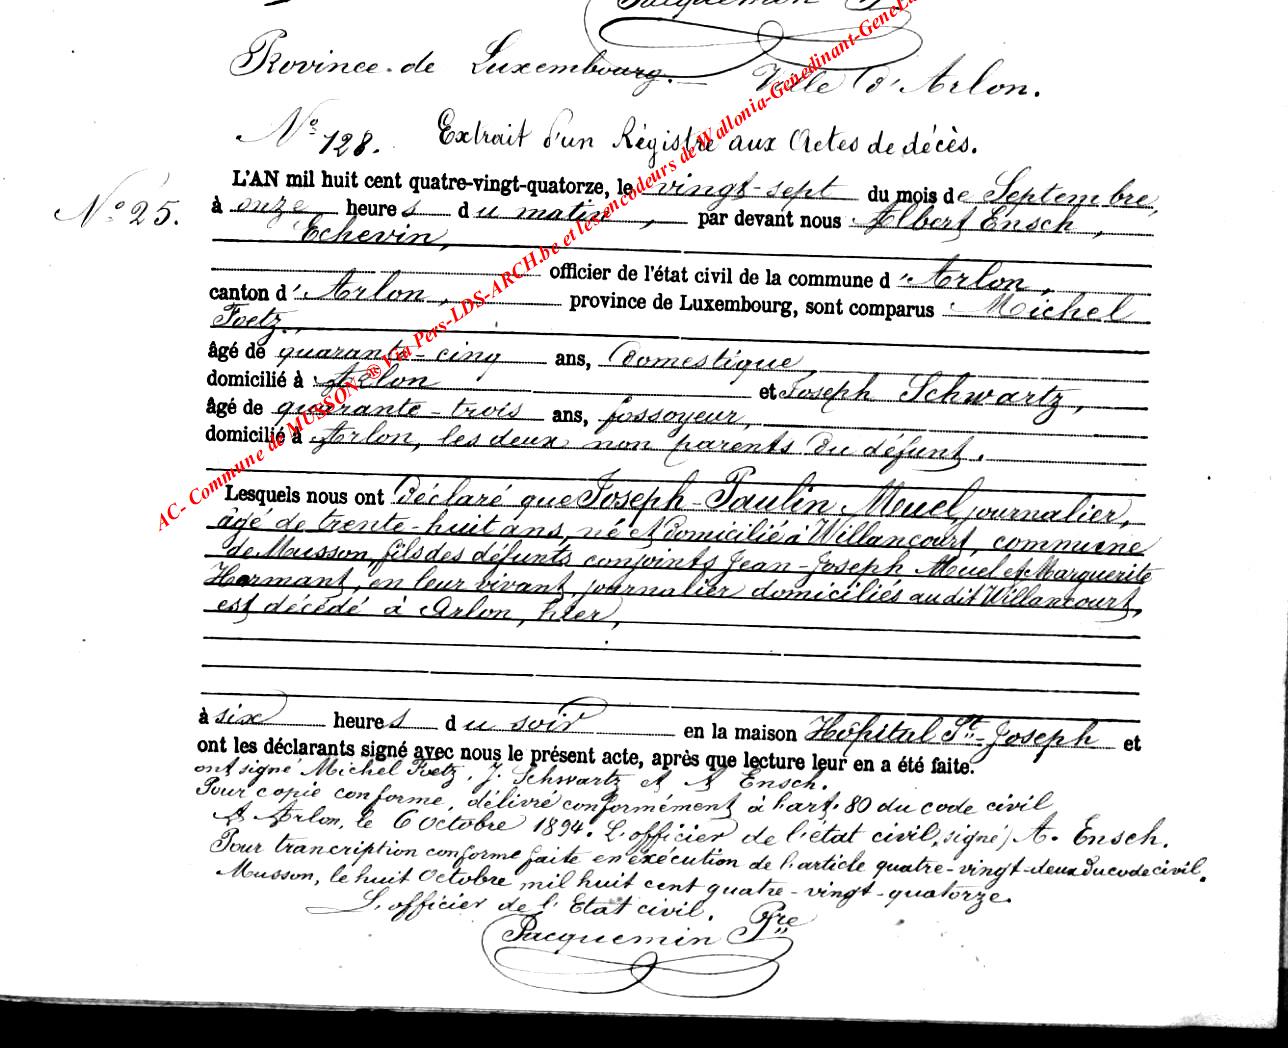 Jacquemin Pre
Province de Luxembourg. Ville d'Arlon.
No 128. Extrait d'un Régistre aux Actes de décès.
No 25.
L'AN mil huit cent quatre-vingt-quatorze, le vingt-sept du mois de Septembre,
à onze heures du matin, par devant nous Albert Ensch,
Echevin,
officier de l'état civil de la commune d'Arlon,
canton d'Arlon, province de Luxembourg, sont comparus Michel
Foetz,
âgé de quarante-cinq ans, domestique,
domicilié à Arlon et Joseph Schwartz,
âgé de quarante-trois ans, fossoyeur,
domicilié à Arlon, les deux non parents du défunt.
Lesquels nous ont déclaré que Joseph-Paulin Muel, journalier,
âgé de trente-huit ans, né et domicilié à Willancourt, commune
de Musson, fils des défunts conjoints Jean-Joseph Muel et Marguerite
Hormant, en leur vivant journalier domiciliés audit Willancourt,
est décédé à Arlon, hier,
à six heures du soir en la maison Hôpital St-Joseph et
ont les déclarants signé avec nous le présent acte, après que lecture leur en a été faite.
ont signé Michel Foetz, J. Schwartz et A Ensch.
Pour copie conforme, délivré conformément à l'art. 80 du code civil
A Arlon, le 6 Octobre 1894. L'officier de l'état civil, signé) A. Ensch.
Pour trancription conforme faite en exécution de l'article quatre-vingt-deux du code civil.
Musson, le huit Octobre mil huit cent quatre-vingt-quatorze.
L'officier de l'Etat civil.
Jacquemin Pre
AC- Commune de MUSSON- ® Via Pers-LDS-ARCH.be et les encodeurs de Wallonia-Genedinant-GeneLux